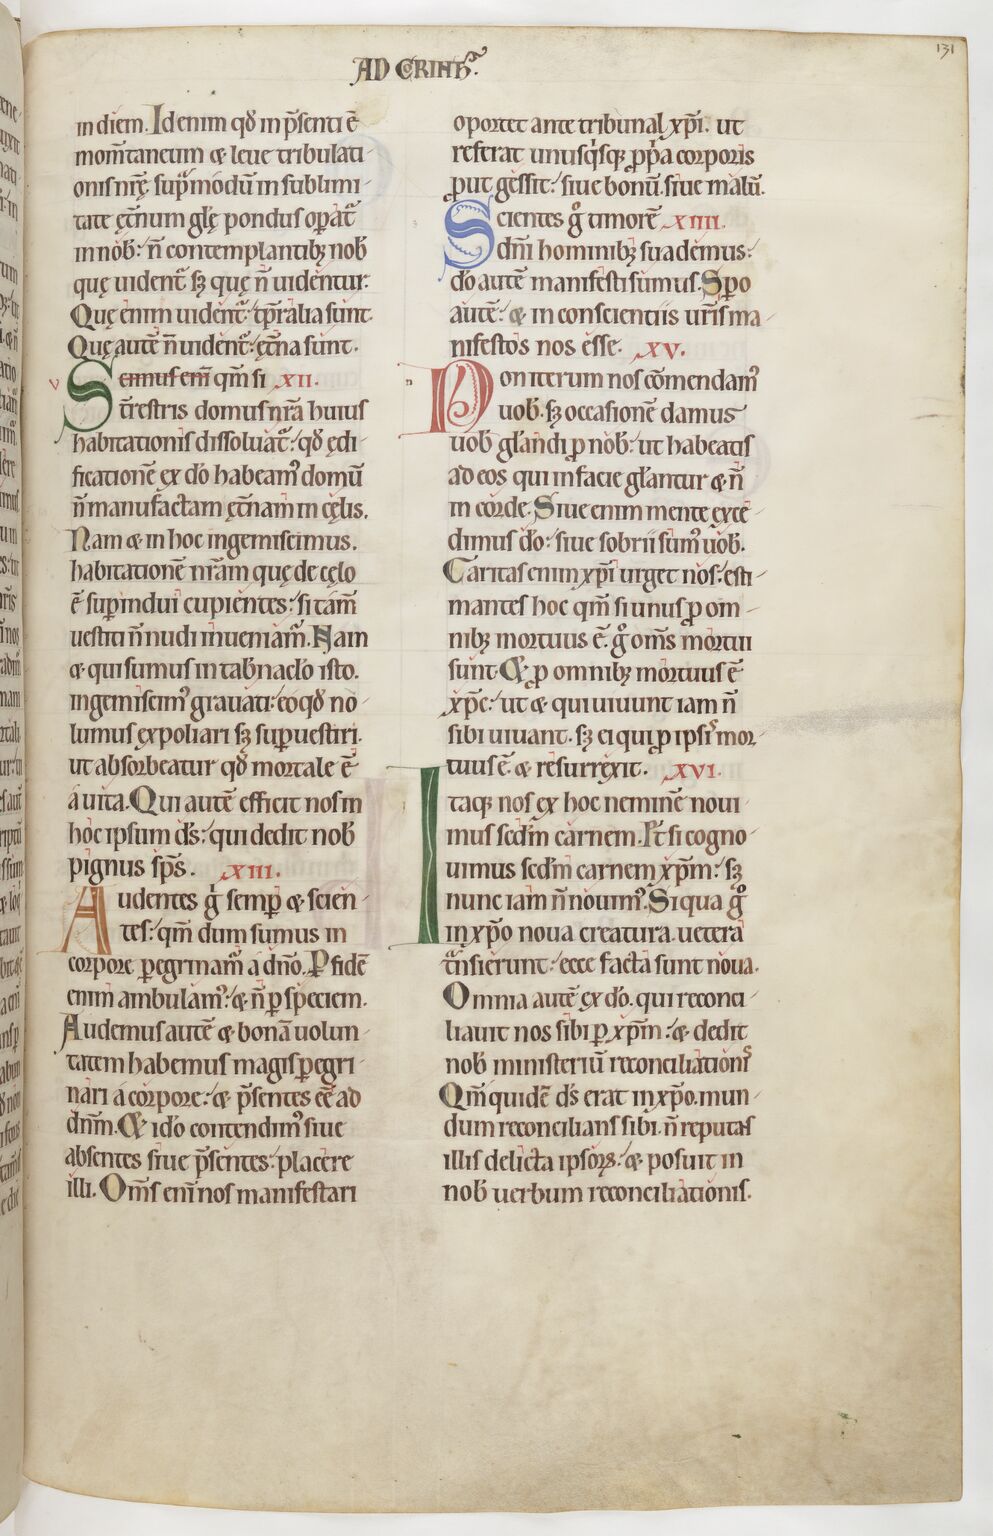 AD CORINTHa.
131
in diem. Idenim qđ in p̄senti ē
mom̄taneum & leue tribulati-
onis nr̄ę. sup̄ modū in sublimi-
tate ęt̄num glę̄ pondus op̄at᷑
in nob̄. n̄ contemplantibꝫ nob̄
quę uident᷑. sꝫ quę n̄ uidentur.
Quę enim uident᷑. tp̄ralia sunt.
Quę autē n̄ uident᷑. ęt̄na sunt.
v
Scimus eni᷑ qm̄ si XII.
t̄restris domus nr̄a huius
habitationis dissoluat᷑. qđ ędi-
ficationē ex do̅ habeam᷒ domū
n̄ manufactam ęt̄nam in cęlis.
Nam & in hoc ingemiscimus.
habitationē nr̄am quę de cęlo
ē supindui cupientes. si tam̄
uestiti n̄ nudi inueniam᷒. Nam
& qui sumus in tab̄naclo isto.
ingemiscim᷒ grauati. eo qđ no-
lumus expoliari sꝫ supuestiri.
ut absorbeatur qđ mortale ē
a uita. Qui autē efficit nos in
hoc ipsum ds̄. qui dedit nob̄
pignus sp̄s. XIII.
Audentes g̊ semp̄ & scien-
tes. qm̄ dum sumus in
corpore peregrinam᷒ a dn̄o. P fidē
enim ambulam᷒. & n̄ p speciem.
Audemus autē & bonā uolun-
tatem habemus magis pegri-
nari a corpore. & p̄sentes eē ad
dnm̄. & ido̅ contendim᷒ siue
absentes siue p̄sentes. placere
illi. Om̄s eni᷑ nos manifestari
oportet ante tribunal xp̄i. ut
referat unusq̇sqꝫ pp̄a corporis
put gessit. siue bonū. siue malū.
Scientes g̊ timorē XIIII.
dn̄i hominibꝫ suademus.
do̅ autē manifesti sumus. Spo
autē. & in conscientiis ur̄is ma-
nifestos nos esse. XV.
n
Non iterum nos cōmendam᷒
uob̄. sꝫ occasionē damus
uob̄ gl̄andi p nob̄. ut habeatis
ad eos qui in facie gl̄antur & n̄
in corde. Siue enim mente exce-
dimus do̅. siue sobrii sum᷒ uob̄.
Caritas enim xp̄i urget nos. esti-
mantes hoc qm̄ si unus p om-
nibꝫ mortuus ē. g̊ om̄s mortui
sunt. & p omnibꝫ mortuus ē
xp̄c. ut & qui uiuunt iam n̄
sibi uiuant. sꝫ ei qui p ipsis mor-
tuus ē. & resurrexit. XVI.
Itaqꝫ nos ex hoc neminē noui-
mus sedm̄ carnem. Et̄ si cogno-
uimus sedm̄ carnem xp̄m. sꝫ
nunc iam n̄ nouim᷒. Si qua g̊
in xp̄o noua creatura. uetera
t̄nsierunt. ecce facta sunt noua.
Omnia autē ex do̅. qui reconci-
liauit nos sibi p xp̄m. & dedit
nob̄ ministeriū reconciliationis
Qm̄ quidē ds̄ erat in xp̄o. mun-
dum reconcilians sibi. n̄ reputans
illis delicta ipsoꝝ. & posuit in
nob̄ uerbum reconciliationis.